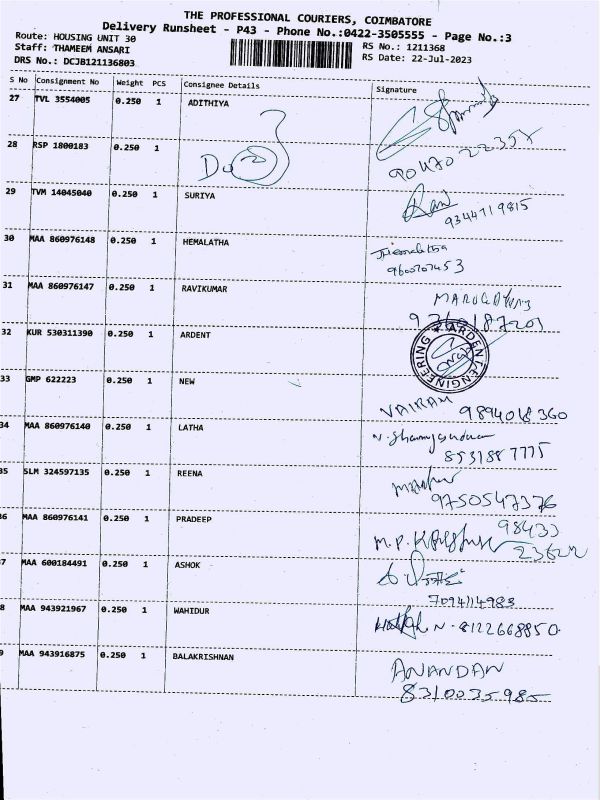 THE PROFESSIONAL COURIERS, COIMBATORE
Delivery Runsheet - P43 - Phone No.:0422-3505555 - Page No.:3
Route: HOUSING UNIT 30
Staff: THAMEEM ANSARI
DRS No.: DCJB121136803
RS No.: 1211368
RS Date: 22-Jul-2023
S No Consignment No Weight PCS Consignee Details Signature
27 TVL 3554005 0.250 1 ADITHIYA
28 RSP 1800183 0.250 1
29 TVM 14045040 0.250 1 SURIYA
9344719815
30 MAA 860976148 0.250 1 HEMALATHA
Hemalatha
9600707453
31 MAA 860976147 0.250 1 RAVIKUMAR
32 KUR 530311390 0.250 1 ARDENT
ARDENT ENGINEERING
33 GMP 622223 0.250 1 NEW
VAIRAM 9894018360
34 MAA 860976140 0.250 1 LATHA
8531887775
35 SLM 324597135 0.250 1 REENA
9750547376
36 MAA 860976141 0.250 1 PRADEEP
98433
37 MAA 600184491 0.250 1 ASHOK
7094114983
38 MAA 943921967 0.250 1 WAHIDUR
N. 8122668850
39 MAA 943916875 0.250 1 BALAKRISHNAN
ANANDAN
8310035985